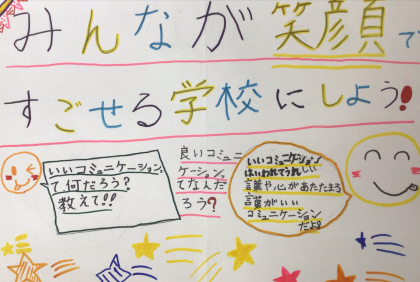 みんなが笑顔で
すごせる学校にしよう!
いいコミュニケーション
て何だろう?
教えて!!
良いコミュニ
ケーション
てなんだ
ろう?
いいコミュニケーション
はいわれてうれしい
言葉や心があたたまる
言葉がいい
コミュニケーション
だよ!